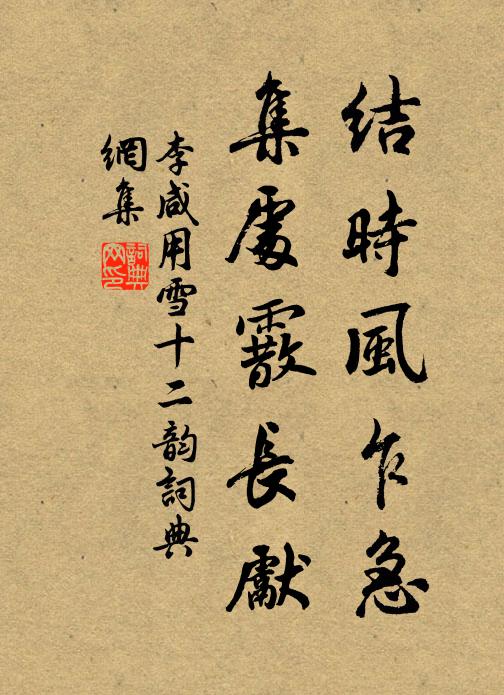 結時風乍急
集處霰長獻
李咸用雪十二韵詞典
網集
詞典
网印